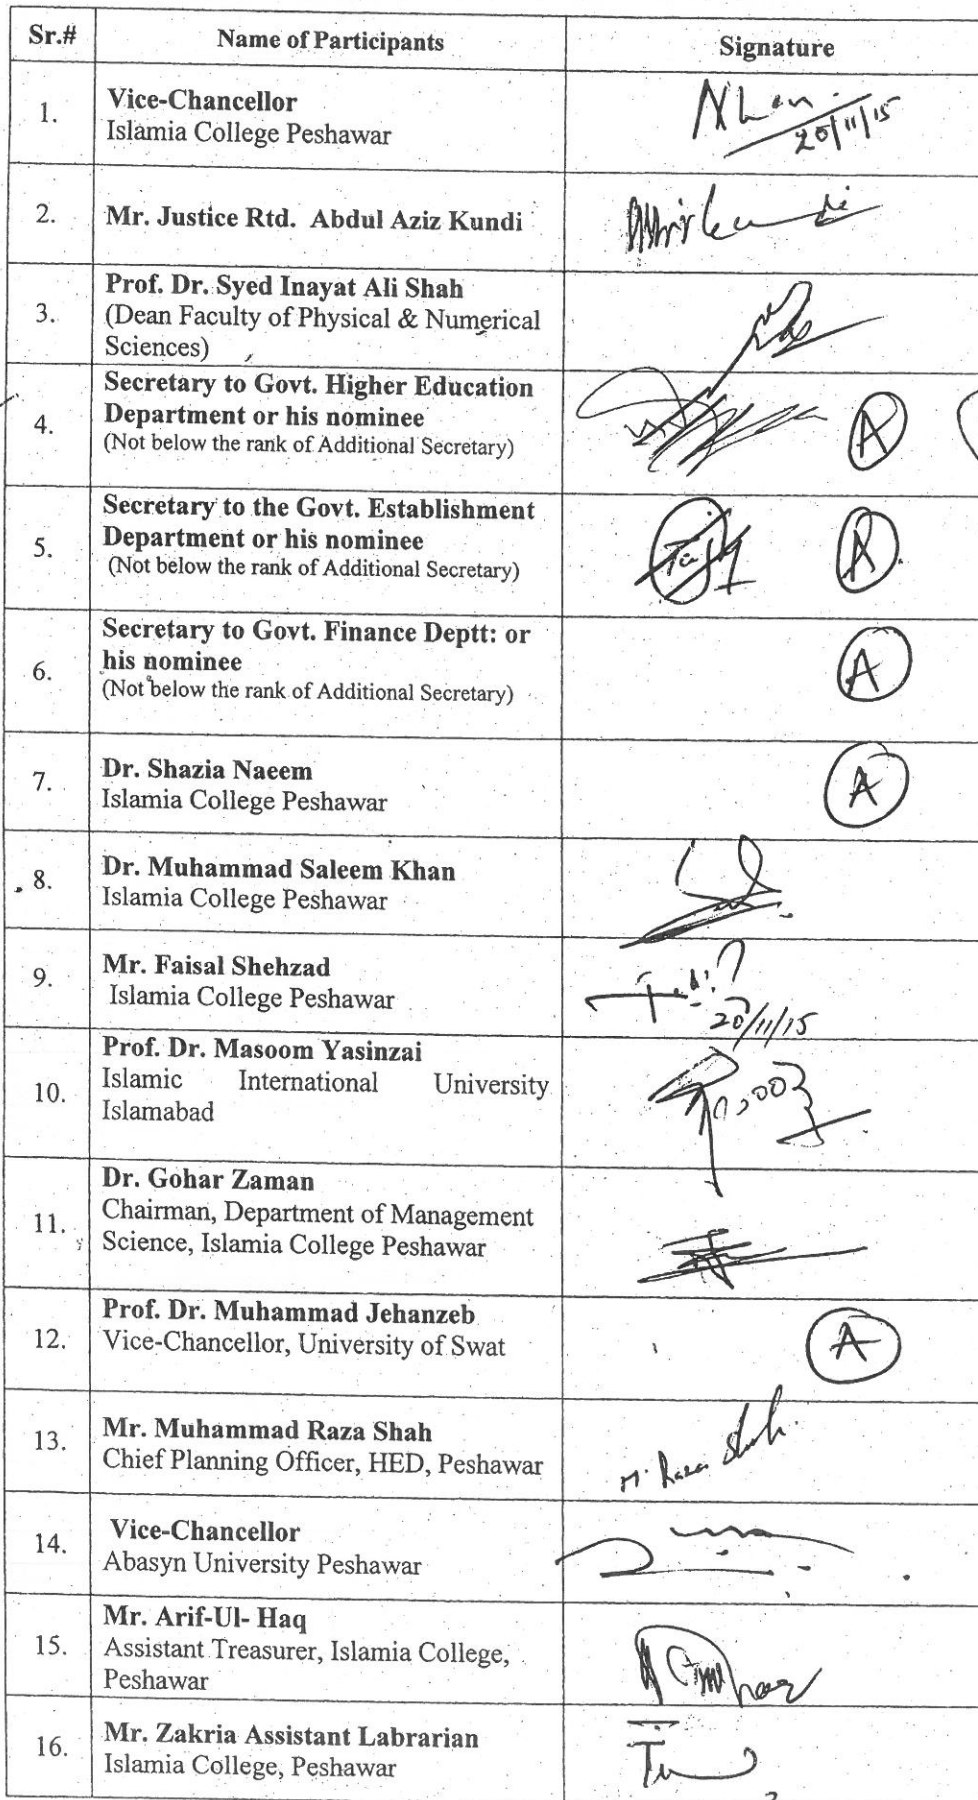 Sr.# Name of Participants Signature
1. Vice-Chancellor
Islamia College Peshawar
20/11/15
2. Mr. Justice Rtd. Abdul Aziz Kundi
3. Prof. Dr. Syed Inayat Ali Shah
(Dean Faculty of Physical & Numerical
Sciences)
4. Secretary to Govt. Higher Education
Department or his nominee
(Not below the rank of Additional Secretary)
A
5. Secretary to the Govt. Establishment
Department or his nominee
(Not below the rank of Additional Secretary)
A
6. Secretary to Govt. Finance Deptt: or
his nominee
(Not below the rank of Additional Secretary)
A
7. Dr. Shazia Naeem
Islamia College Peshawar
A
8. Dr. Muhammad Saleem Khan
Islamia College Peshawar
9. Mr. Faisal Shehzad
Islamia College Peshawar
20/11/15
10. Prof. Dr. Masoom Yasinzai
Islamic International University
Islamabad
11. Dr. Gohar Zaman
Chairman, Department of Management
Science, Islamia College Peshawar
12. Prof. Dr. Muhammad Jehanzeb
Vice-Chancellor, University of Swat
A
13. Mr. Muhammad Raza Shah
Chief Planning Officer, HED, Peshawar
M. Raza Shah
14. Vice-Chancellor
Abasyn University Peshawar
15. Mr. Arif-Ul- Haq
Assistant Treasurer, Islamia College,
Peshawar
16. Mr. Zakria Assistant Labrarian
Islamia College, Peshawar